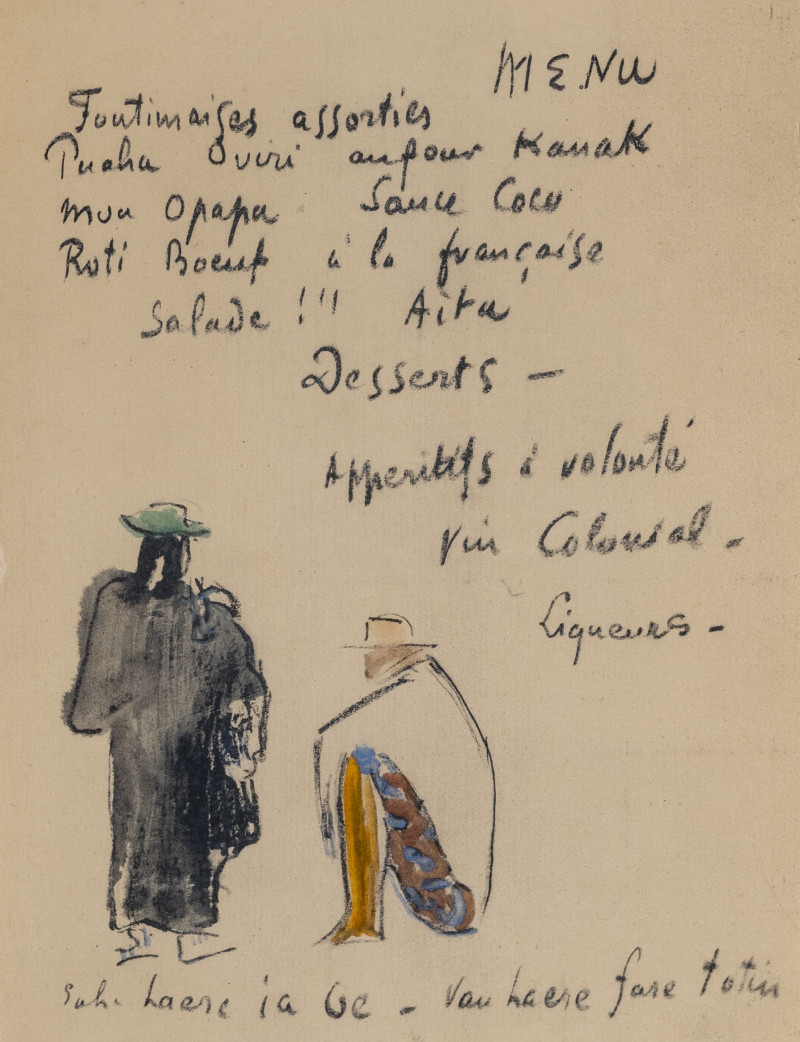 MENU
Foutimaises assorties
Puaha Oviri aufour Kanak
Moa Opapa Sauce Coco
Roti Boeuf à la française
Salade !!! Aita
Desserts -
Apperitifs à volonté
Vin Colonial -
Liqueurs -
haere ia oe - Vau haere fare